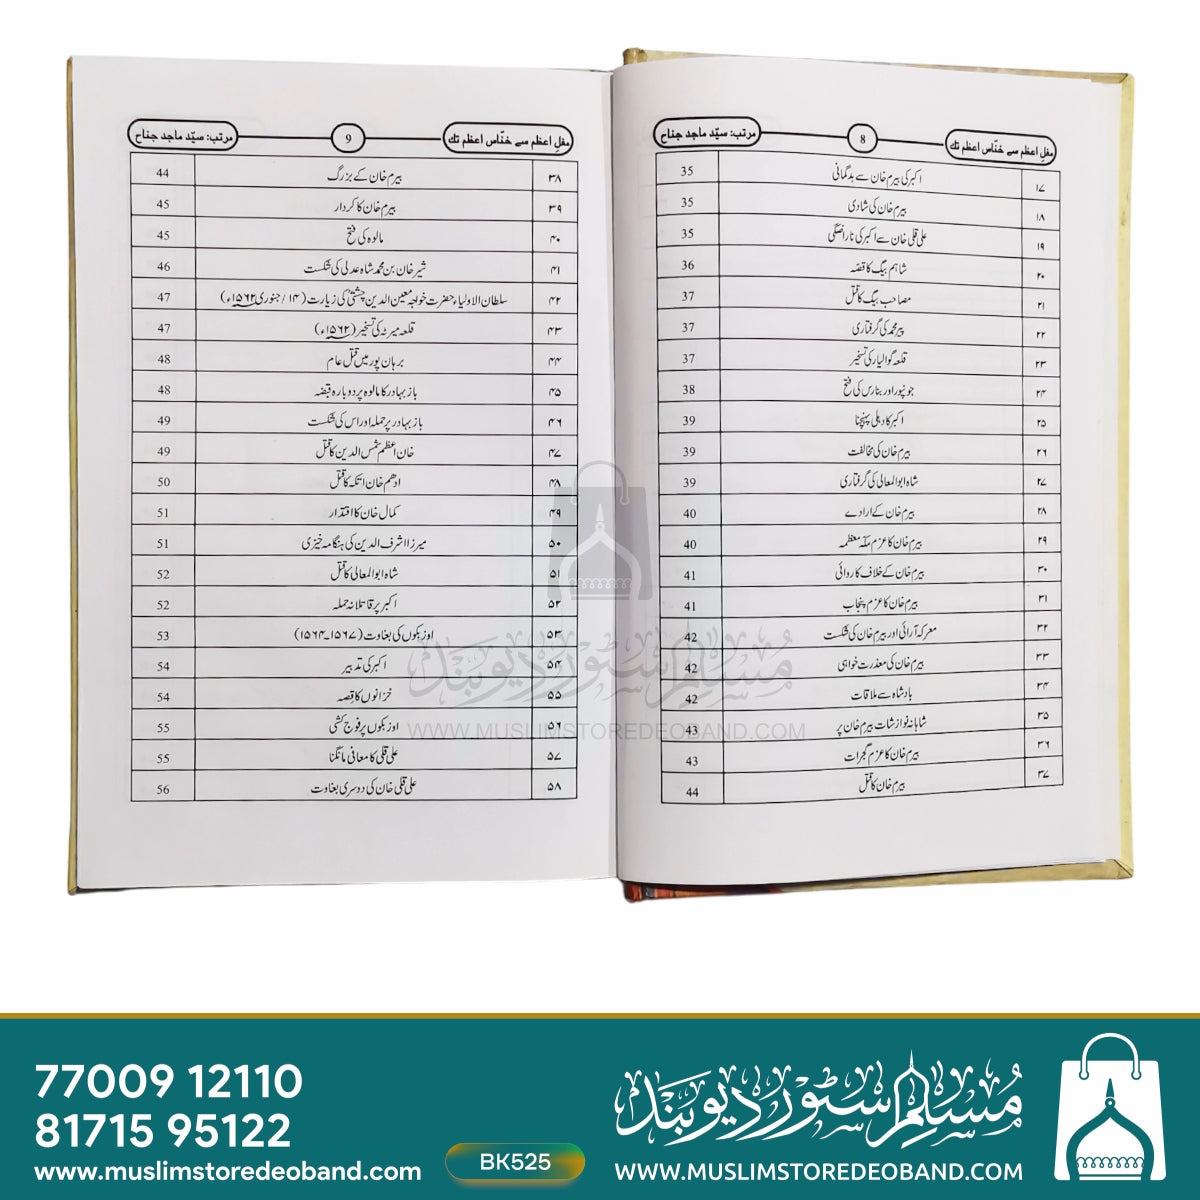 مغلِ اعظم سے خنّاس اعظم تك 8 مرتب: سیّد ماجد جناح
۱۷ اکبر کی بیرم خان سے بدگمانی 35
۱۸ بیرم خان کی شادی 35
۱۹ علی قلی خان سے اکبر کی ناراضگی 35
۲۰ شاہم بیگ کا قصّہ 36
۲۱ مصاحب بیگ کا قتل 37
۲۲ پیر محمد کی گرفتاری 37
۲۳ قلعہ گوالیار کی تسخیر 37
۲۴ جونپور اور بنارس کی فتح 38
۲۵ اکبر کا دہلی پہنچنا 39
۲۶ بیرم خان کی مخالفت 39
۲۷ شاہ ابوالمعالی کی گرفتاری 39
۲۸ بیرم خان کے ارادے 40
۲۹ بیرم خان کا عزم مکّہ معظمہ 40
۳۰ بیرم خان کے خلاف کاروائی 41
۳۱ بیرم خان کا عزم پنجاب 41
۳۲ معرکہ آرائی اور بیرم خان کی شکست 42
۳۳ بیرم خان کی معذرت خواہی 42
۳۴ بادشاہ سے ملاقات 42
۳۵ شاہانہ نوازشات بیرم خان پر 43
۳۶ بیرم خان کا عزم گجرات 43
۳۷ بیرم خان کا قتل 44
مغلِ اعظم سے خنّاس اعظم تك 9 مرتب: سیّد ماجد جناح
۳۸ بیرم خان کے بزرگ 44
۳۹ بیرم خان کا کردار 45
۴۰ مالوہ کی فتح 45
۴۱ شیر خان بن محمد شاہ عدلی کی شکست 46
۴۲ سلطان الاولیاء حضرت خواجہ معین الدین چشتیؒ کی زیارت (۱۴/جنوری ۱۵۶۲ء) 47
۴۳ قلعہ میرٹہ کی تسخیر (۱۵۶۲ء) 47
۴۴ برہان پور میں قتل عام 48
۴۵ باز بہادر کا مالوہ پر دوبارہ قبضہ 48
۴۶ باز بہادر پر حملہ اور اس کی شکست 49
۴۷ خان اعظم شمس الدین کا قتل 49
۴۸ ادھم خان اتکہ کا قتل 50
۴۹ کمال خان کا اقتدار 51
۵۰ میرزا اشرف الدین کی ہنگامہ خیزی 51
۵۱ شاہ ابوالمعالی کا قتل 52
۵۲ اکبر پر قاتلانہ حملہ 52
۵۳ اوزبکوں کی بغاوت (۱۵۶۷۔۱۵۶۴) 53
۵۴ اکبر کی تدبیر 54
۵۵ خزانوں کا قصہ 54
۵۶ اوزبکوں پر فوج کشی 55
۵۷ علی قلی کا معافی مانگنا 55
۵۸ علی قلی خان کی دوسری بغاوت 56
مسلم سٹور دیوبند
WWW.MUSLIMSTOREDEOBAND.COM
77009 12110
81715 95122
www.muslimstoredeoband.com
BK525
مسلم سٹور دیوبند
WWW.MUSLIMSTOREDEOBAND.COM